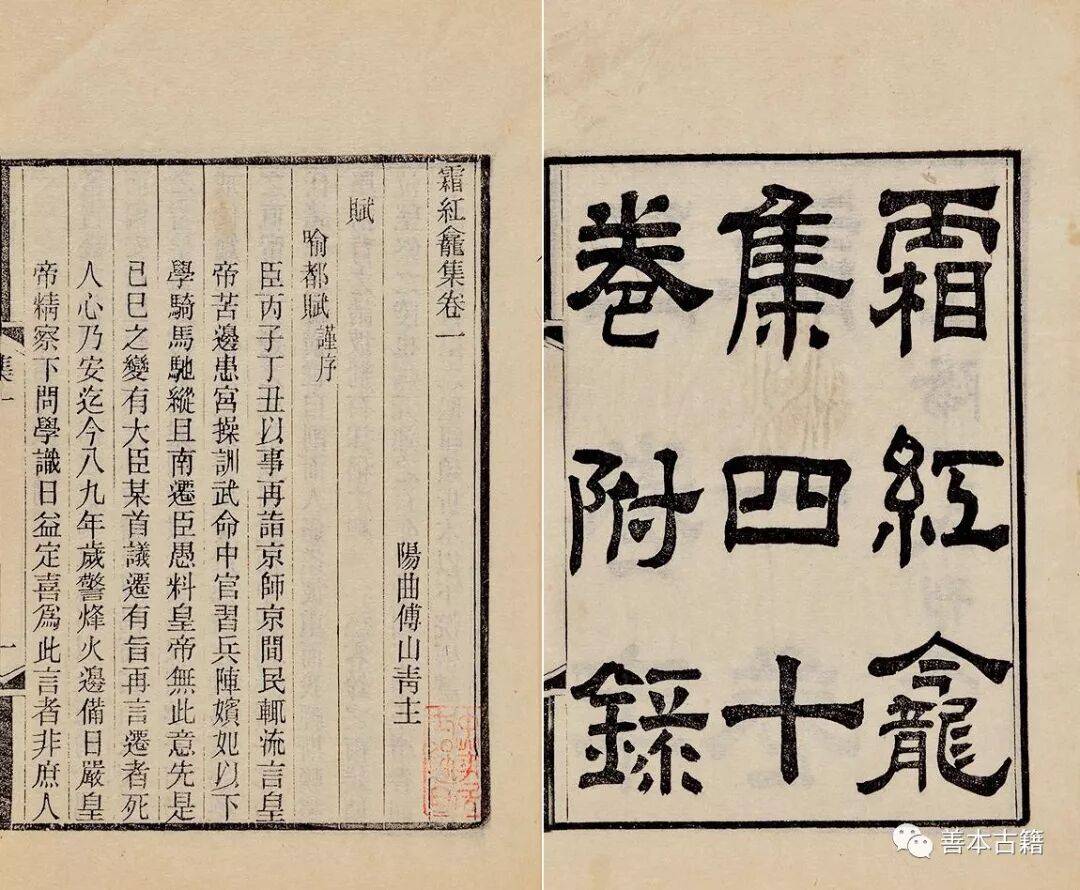 霜紅龕
集四十
卷附錄
霜紅龕集卷一
陽曲傅山靑主
賦
喻都賦謹序
臣丙子丁丑以事再詣京師京間民輒流言皇
帝苦邊患宮操訓武命中官習兵陣嬪妃以下
學騎馬馳縱且南遷臣愚料皇帝無此意先是
己巳之變有大臣某首議遷有旨再言遷者死
人心乃安迄今八九年歲警烽火邊備日嚴皇
帝精察下問學識日益定喜爲此言者非庶人
集一
一
善本古籍